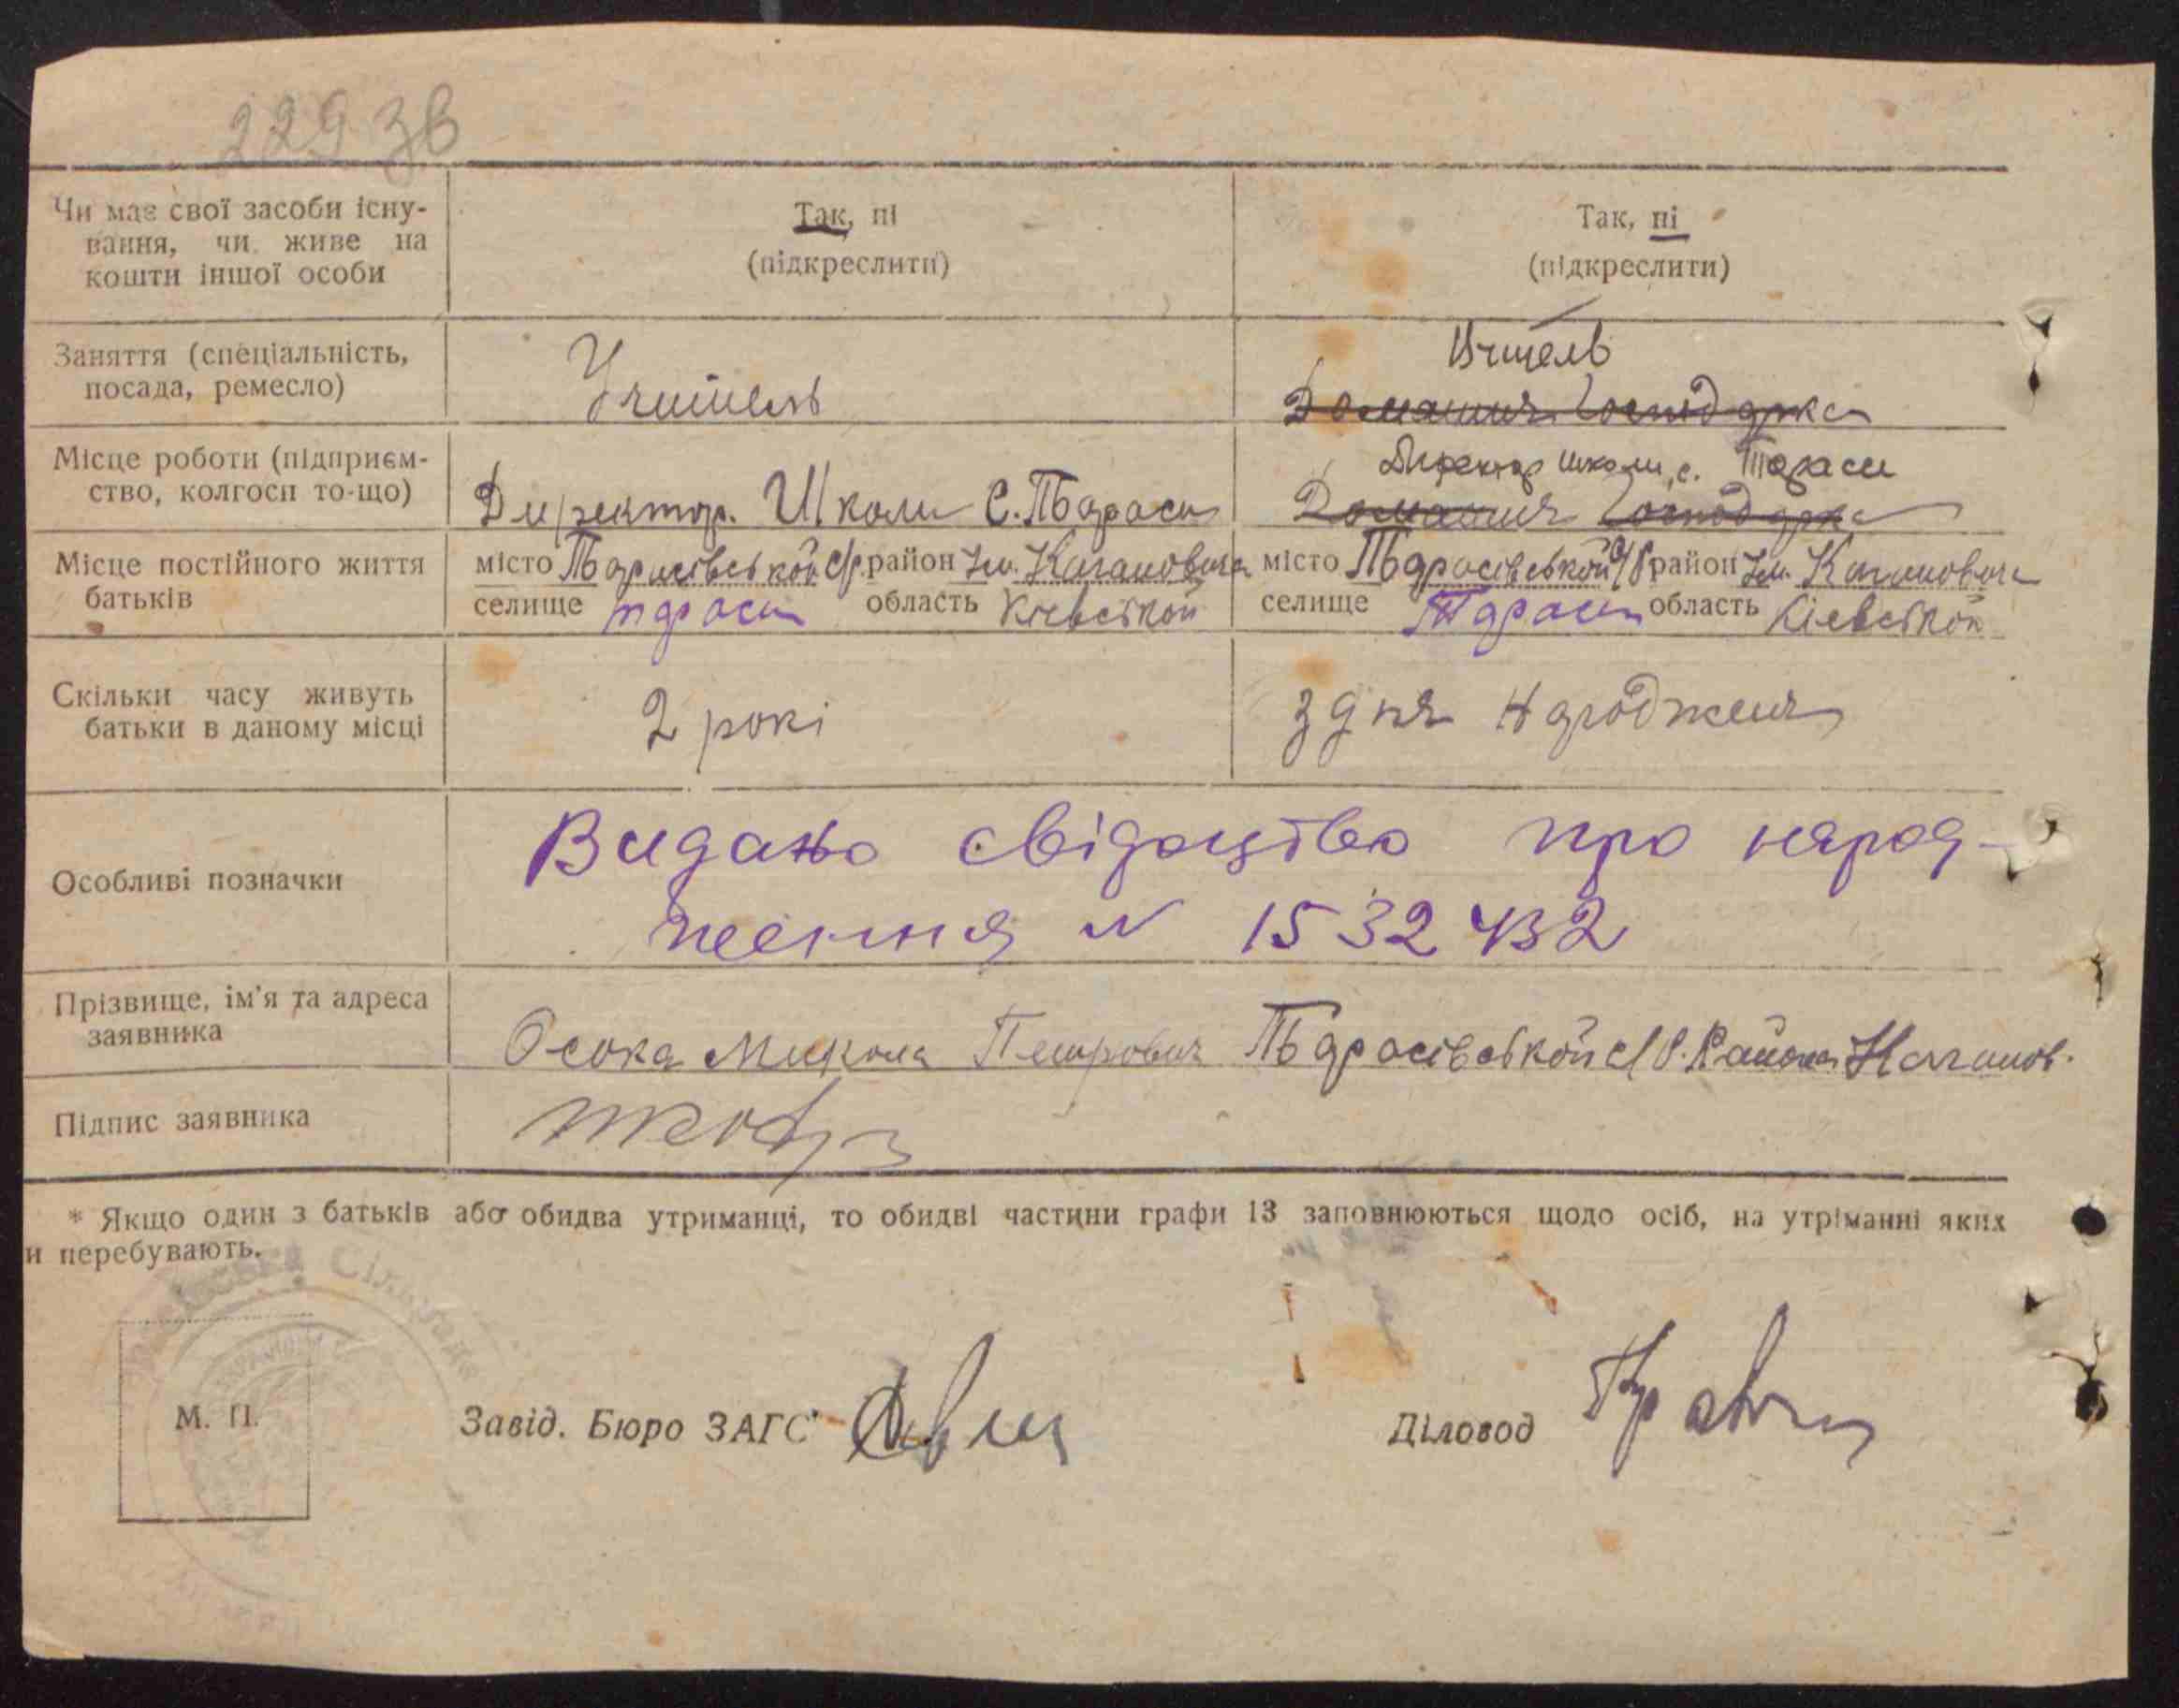 229 зв
Чи має свої засоби існу-
вання, чи живе на
кошти іншої особи
Так, ні
(підкреслити)
Так, ні
(підкреслити)
Заняття (спеціальність,
посада, ремесло)
Учитель
Вчитель
Домашня Господарка
Місце роботи (підприєм-
ство, колгосп то-що)
Директор. Школи С. Тараси
Директор школи, с. Тараси
Домашня Господарка
Місце постійного життя
батьків
місто Тарасівської с/р. район Ім. Кагановича
селище Тараси область Кіевської
місто Тарасівської с/р район Ім. Кагановича
селище Тараси область Кіевської
Скільки часу живуть
батьки в даному місці
2 рокі
З дня Народженя
Особливі позначки
Видано свідоцтво про народ-
ження N 1532432
Прізвище, ім'я та адреса
заявника
Осока Микола Петрович Тарасівської с/р. Района Каганов.
Підпис заявника
* Якщо один з батьків або обидва утриманці, то обидві частини графи 13 заповнюються щодо осіб, на утріманні яких
и перебувають.
М. П.
Завід. Бюро ЗАГС
Діловод